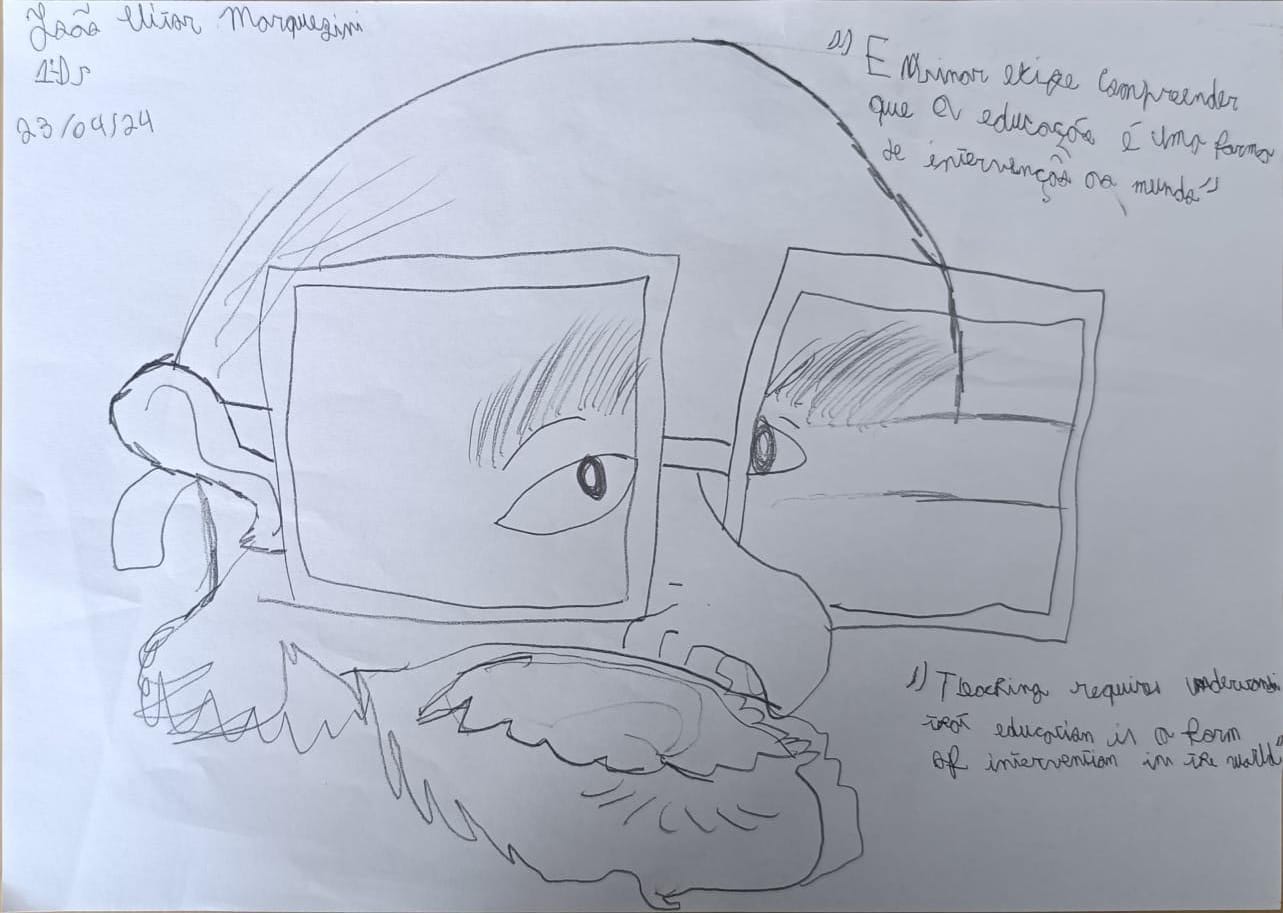 João Vitor Marquezini
1°Ds
23/04/24
"Ensinar exige compreender
que a educação é uma forma
de intervenção no mundo"
"Teaching requires understandi
that education is a form
of intervention in the world"